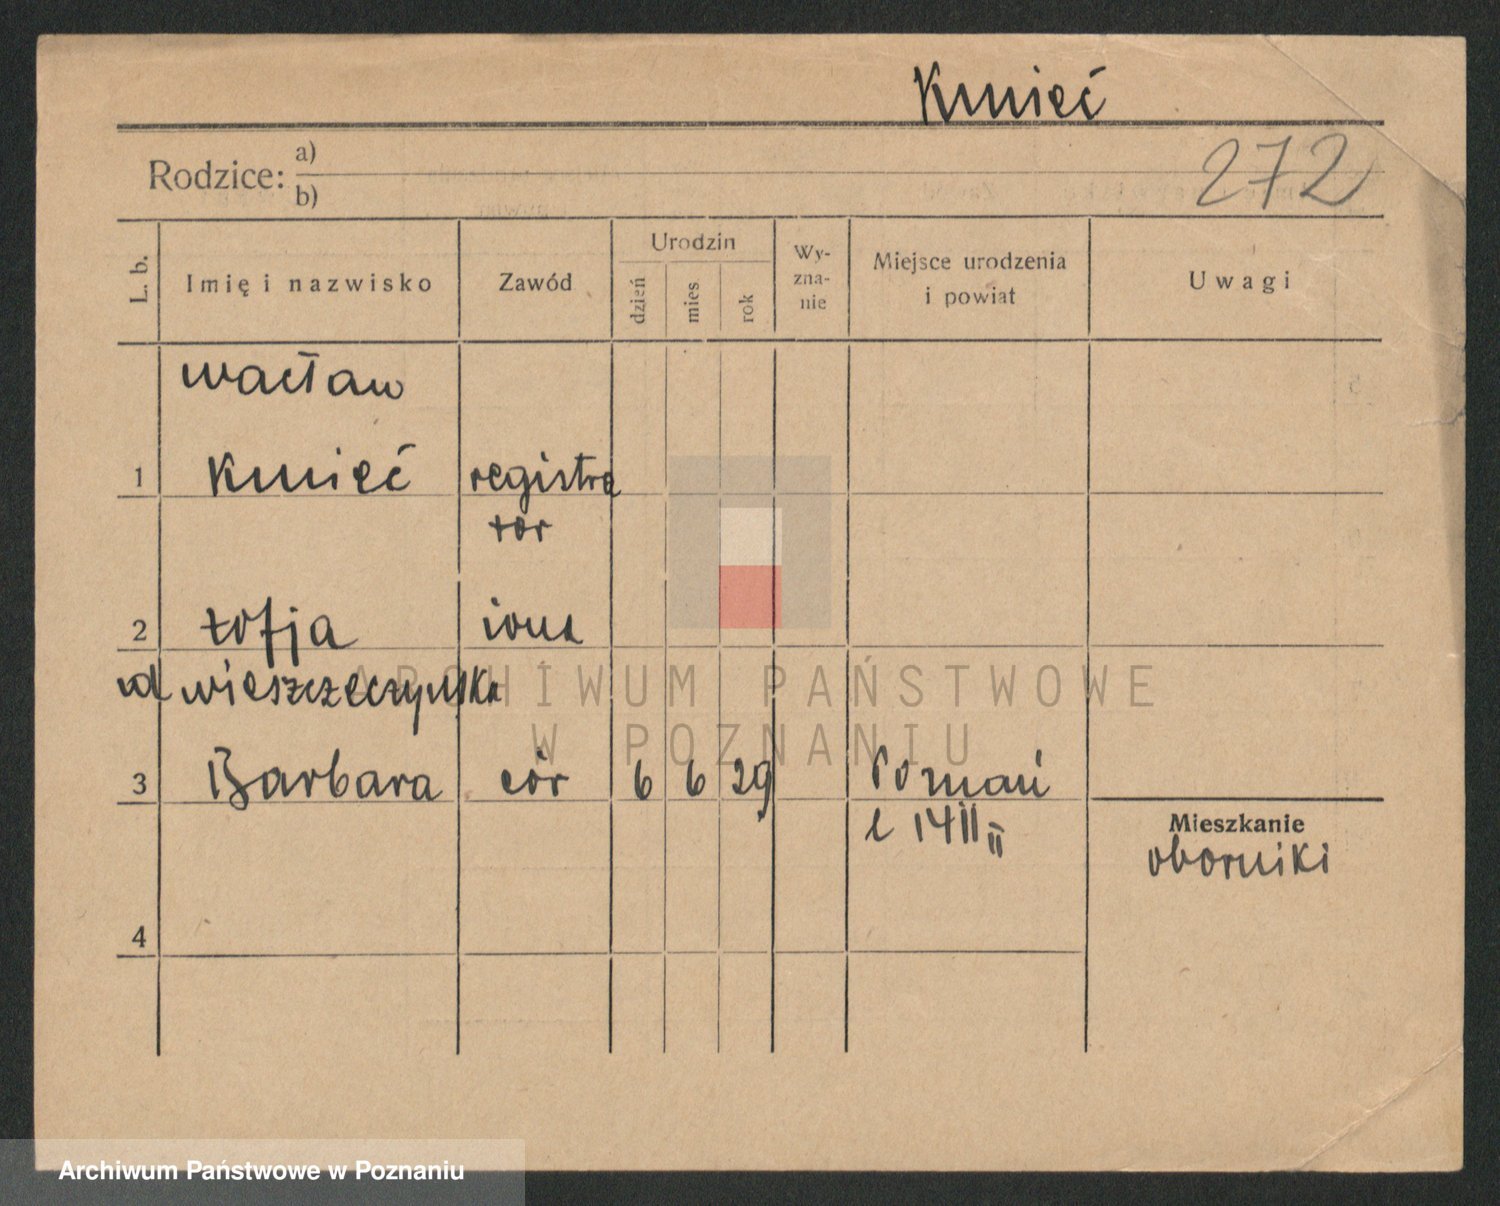 Kmieć
Rodzice: a)
b)
272
L. b.
Imię i nazwisko
Zawód
Urodzin
dzień
mies
rok
Wy-
zna-
nie
Miejsce urodzenia
i powiat
Uwagi
wacław
1 Kmieć registra
tor
2 zofja żona
wieszczeczyńska
3 Barbara cór 6 6 29 Poznań
l 1411 II
Mieszkanie
oborniki
4
ARCHIWUM PAŃSTWOWE
W POZNANIU
Archiwum Państwowe w Poznaniu